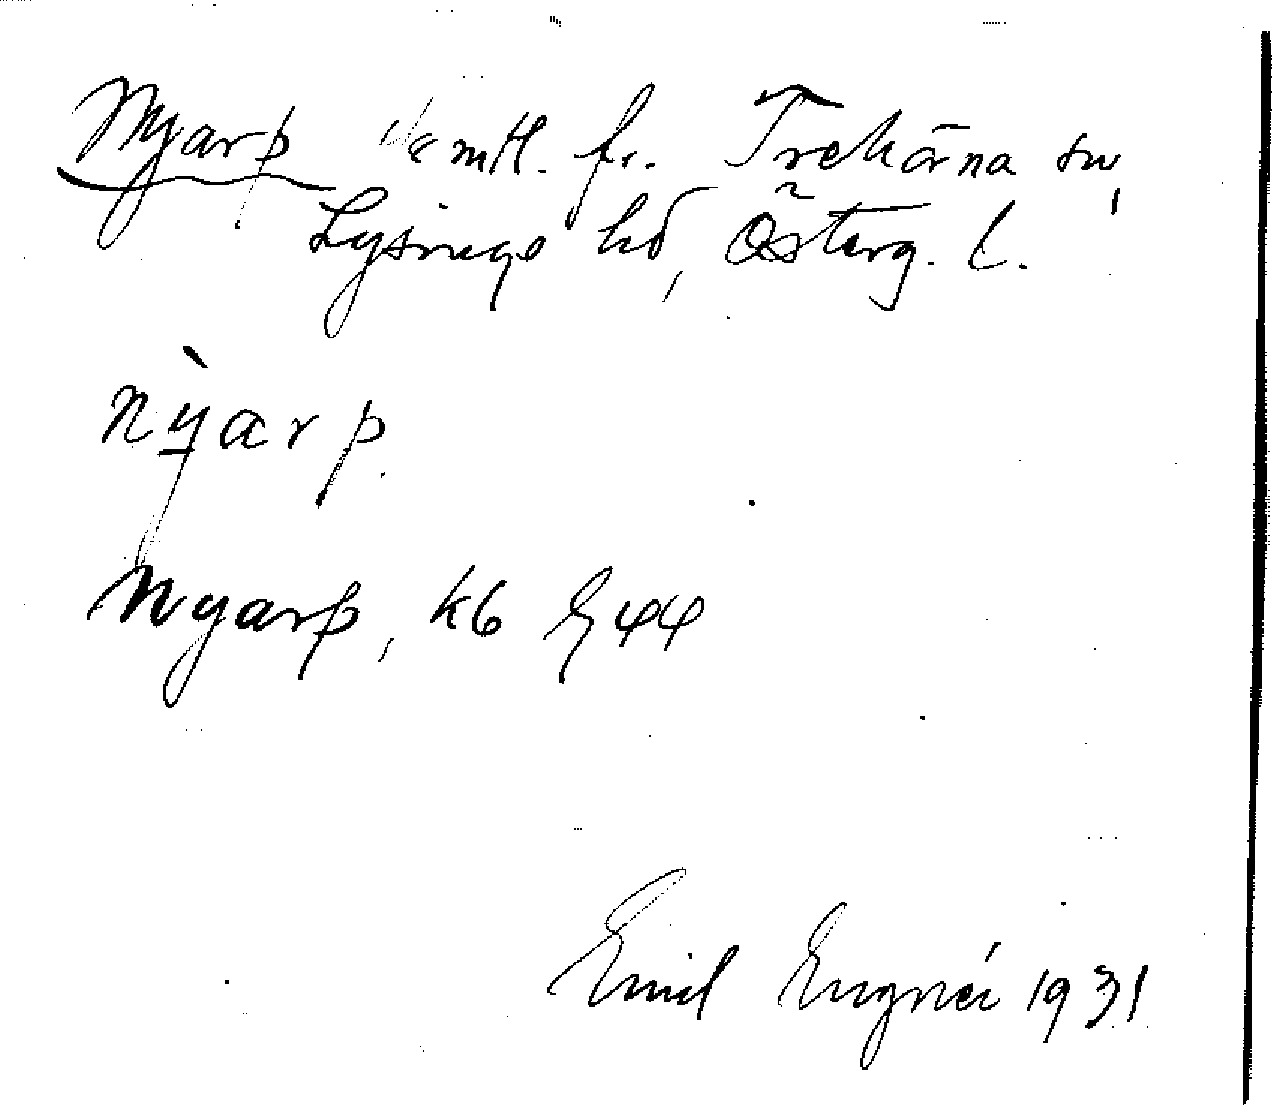 Nyarp 1/8 mtl. fr. Trehörna sn,
Lysings hd, Österg. l.
nỳarp
Nyarp, kb G44
Emil Engnér 1931